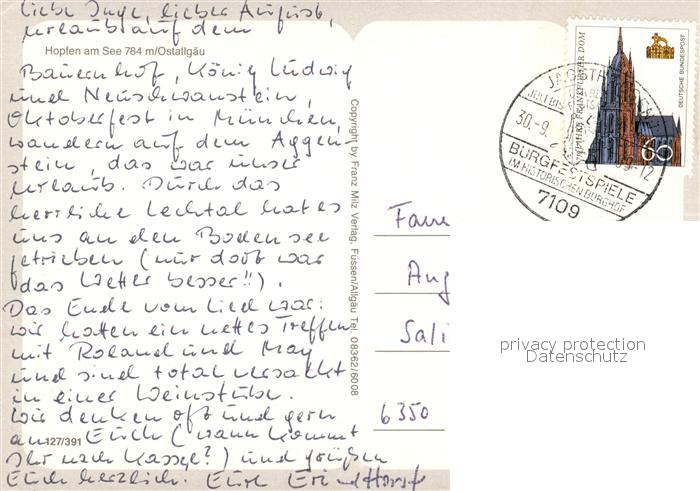 Liebe Inge, lieber August,
Urlaub auf dem
Hopfen am See 784 m/Ostallgäu
Bauernhof, König Ludwig
und Neuschwanstein,
Oktoberfest in München,
wandern auf dem Aggen-
stein, das war unser
Urlaub. Durch das
herrliche Lechtal hat es
uns an den Bodensee
getrieben (nur dort war
das Wetter besser!!).
Das Ende vom Lied war:
wir hatten ein nettes Treffen
mit Roland und May
und sind total versackt
in einer Weinstube.
Wir denken oft und gern
an Euch (wann kommt
127/391
Ihr nach Kassel?) und grüßen
Euch herzlich. Eure Eri und Horst
Copyright by Franz Milz Verlag, Füssen/Allgäu Tel. 08362/6008
FRANKFURTER DOM
DEUTSCHE BUNDESPOST
60
30.-9.
-12
BURGFESTSPIELE
IM HISTORISCHEN BURGHOF
7109
Fam
Aug
Sali
6350
privacy protection
Datenschutz